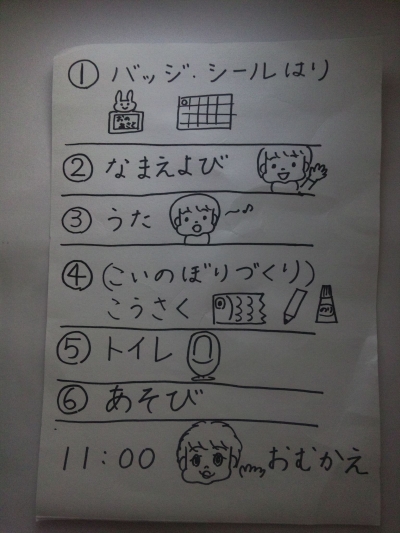 ① バッジ・シールはり
② なまえよび
③ うた
④ (こいのぼりづくり)
こうさく
⑤ トイレ
⑥ あそび
11:00 おむかえ